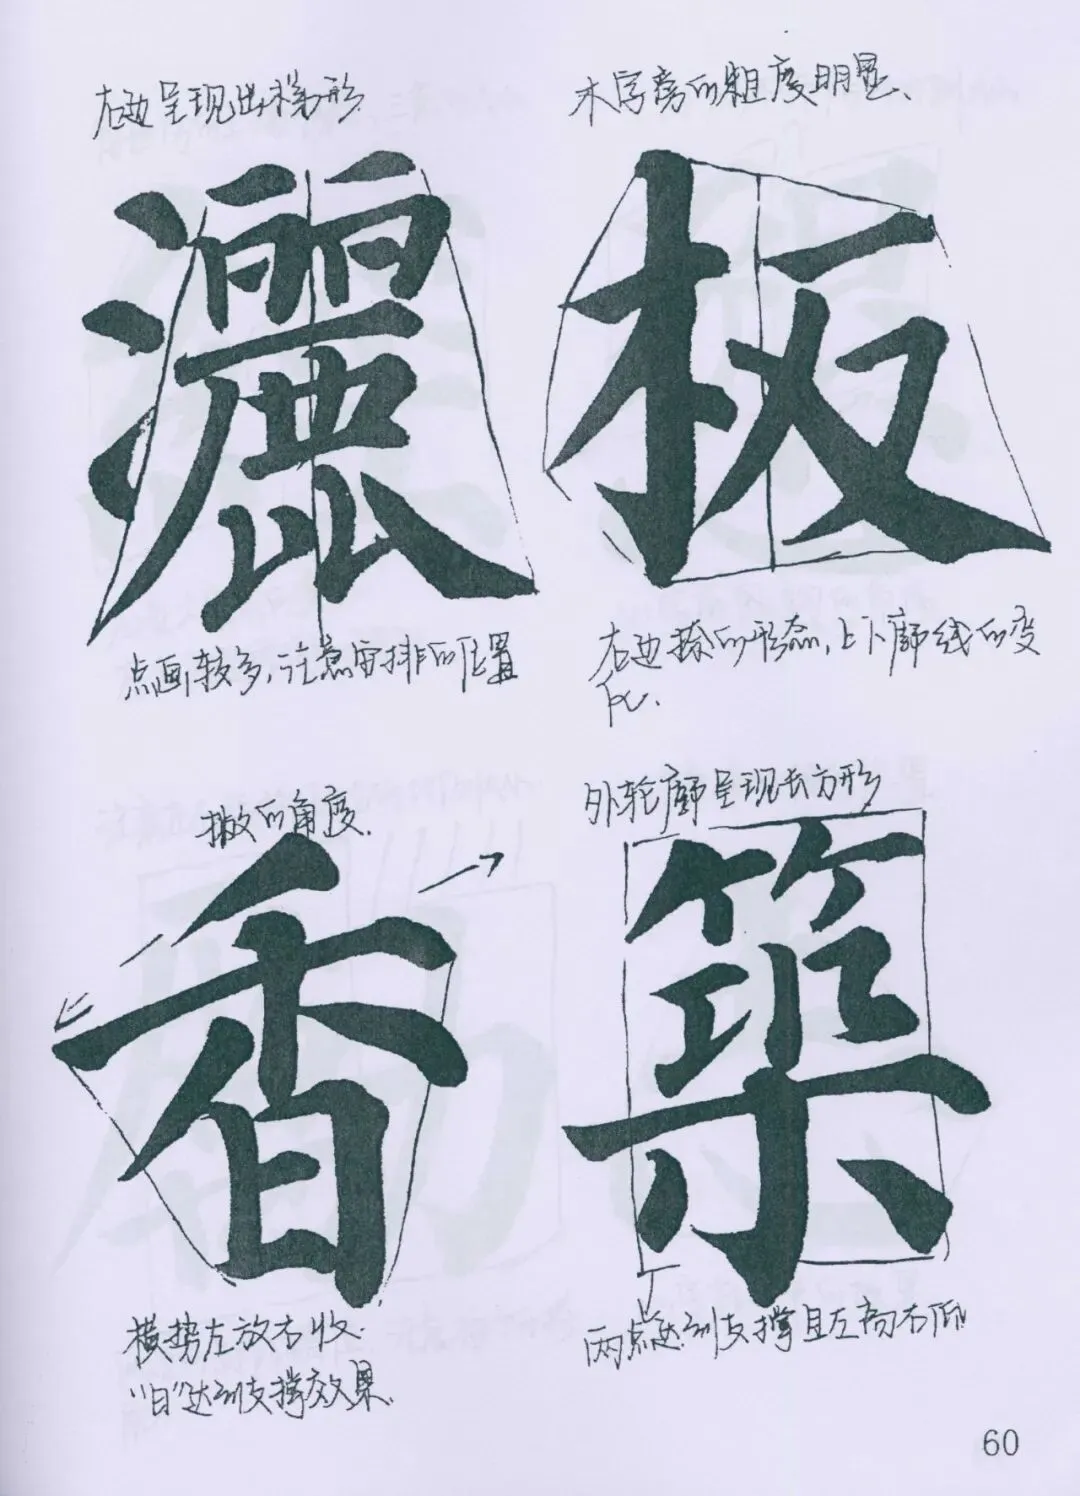 右边呈现出梯形
灑
点画较多,注意安排的位置
木字旁的粗度明显、
板
右边捺的形态,上下廓线的变
化、
撇的角度.
香
横势左放右收.
“日”达到支撑效果.
外轮廓呈现长方形
築
两点达到支撑且左高右低
60